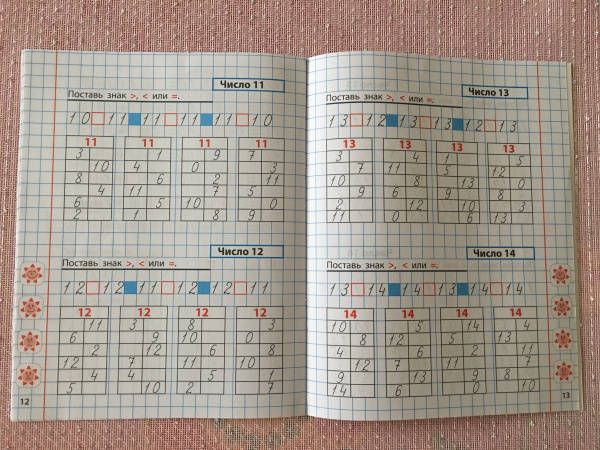 Число 11
Поставь знак >, < или =.
10 11 11 11 11 10
11 11 11 11
3 1 9 7
10 4 0 3
8 6 2 11
4 11 7 5
6 5 10 0
2 1 8 9
Число 12
Поставь знак >, < или =.
12 12 11 12 12 11
12 12 12 12
11 3 8 3
6 9 10 0
2 12 6 8
12 7 11
4 4 5 1
5 10 2 7
12
Число 13
Поставь знак >, < или =.
13 12 13 13 12 13
13 13 13 13
3 4 1 5
7 11 5 12
10 8 13 0
9 6 9 8
2 12 10 3
11 0 6 13
Число 14
Поставь знак >, < или =.
13 14 14 13 14 14
14 14 14 14
10 5 14 4
8 12 5
4 2 7
12 7 11
9 13 9 8
14 6 0 10
13